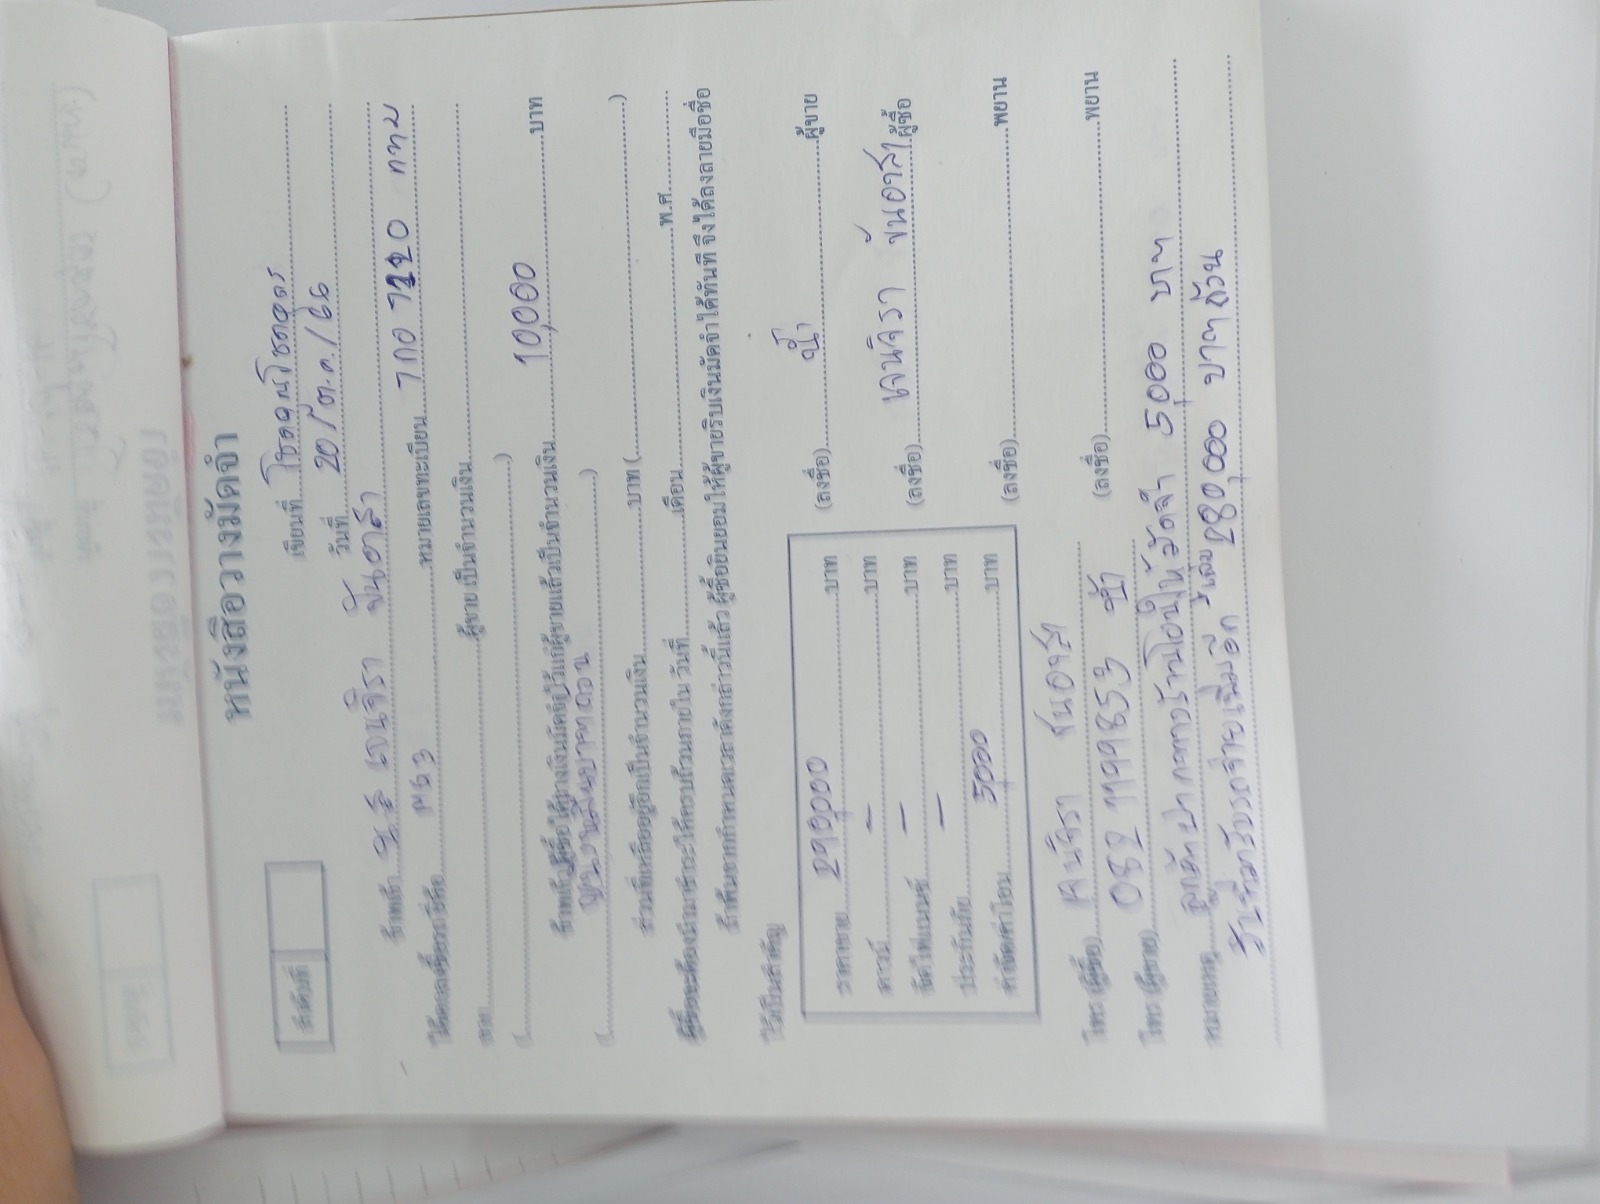 หนังสือวางมัดจำ
ลำดับที่
เขียนที่ โชคคูณโชคอุดร
วันที่ 20/ต.ค./66
ข้าพเจ้า น.ส เจนจิรา ขันดาสา
ได้ตกลงซื้อรถยี่ห้อ MG3 หมายเลขทะเบียน 7กอ 7220 กทม
ราคา ผู้ขาย เป็นจำนวนเงิน
( )
ข้าพเจ้าผู้ซื้อได้วางเงินมัดจำไว้แก่ผู้ขายแล้วเป็นจำนวนเงิน 10,000 บาท
( หนึ่งหมื่นบาทถ้วน )
ส่วนที่เหลืออยู่อีกเป็นจำนวนเงิน บาท ( )
ผู้ซื้อจะต้องนำมาชำระให้ครบถ้วนภายใน วันที่ เดือน พ.ศ.
ถ้าพ้นจากกำหนดเวลาดังกล่าวนี้แล้ว ผู้ซื้อยินยอมให้ผู้ขายริบเงินมัดจำได้ทันที จึงได้ลงลายมือชื่อ
ไว้เป็นสำคัญ
ราคาขาย 290,000 บาท
ดาวน์ – บาท
จัดไฟแนนซ์ – บาท
ประกันภัย – บาท
ค่าจัดค่าโอน 5,000 บาท
(ลงชื่อ) ผู้ขาย
(ลงชื่อ) เจนจิรา ขันดาสา ผู้ซื้อ
(ลงชื่อ) พยาน
(ลงชื่อ) พยาน
โทร. (ผู้ซื้อ)
โทร. (ผู้ขาย) 082 1199853
หมายเหตุ ลูกค้า 5,000 บาท
280,000 บาทถ้วน